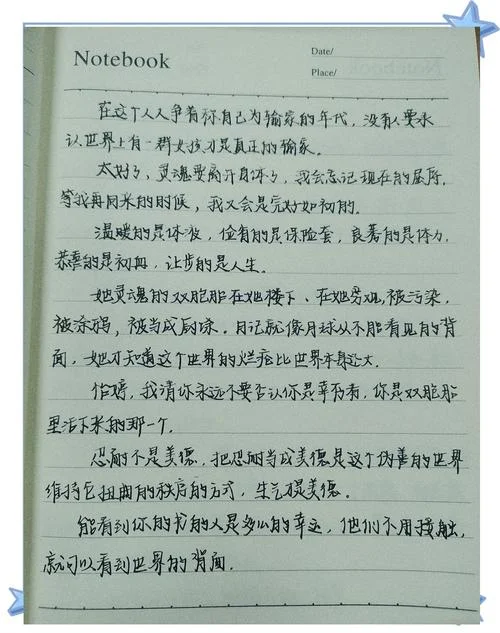 Notebook
Date/
Place/
在这个人人争着称自己为输家的年代，没有人要承
认世界上有一群女孩才是真正的输家。
太好了，灵魂要离开身体了，我会忘记现在的屈辱，
等我再回来的时候，我又会是完好如初的。
温暖的是体液，俭省的是保险套，良善的是体力，
恭喜的是初血，让步的是人生。
她灵魂的双胞胎在她楼下、在她旁观，被污染，
被涂鸦，被当成厨余。日记就像月球从不能看见的背
面，她才知道这个世界的烂疮比世界本身还大。
怡婷，我请你永远不要否认你是幸存者，你是双胞胎
里活下来的那一个。
忍耐不是美德，把忍耐当成美德是这个伪善的世界
维持它扭曲的秩序的方式，生气才是美德。
能看到你的书的人是多么的幸运，他们不用接触，
就可以看到世界的背面。